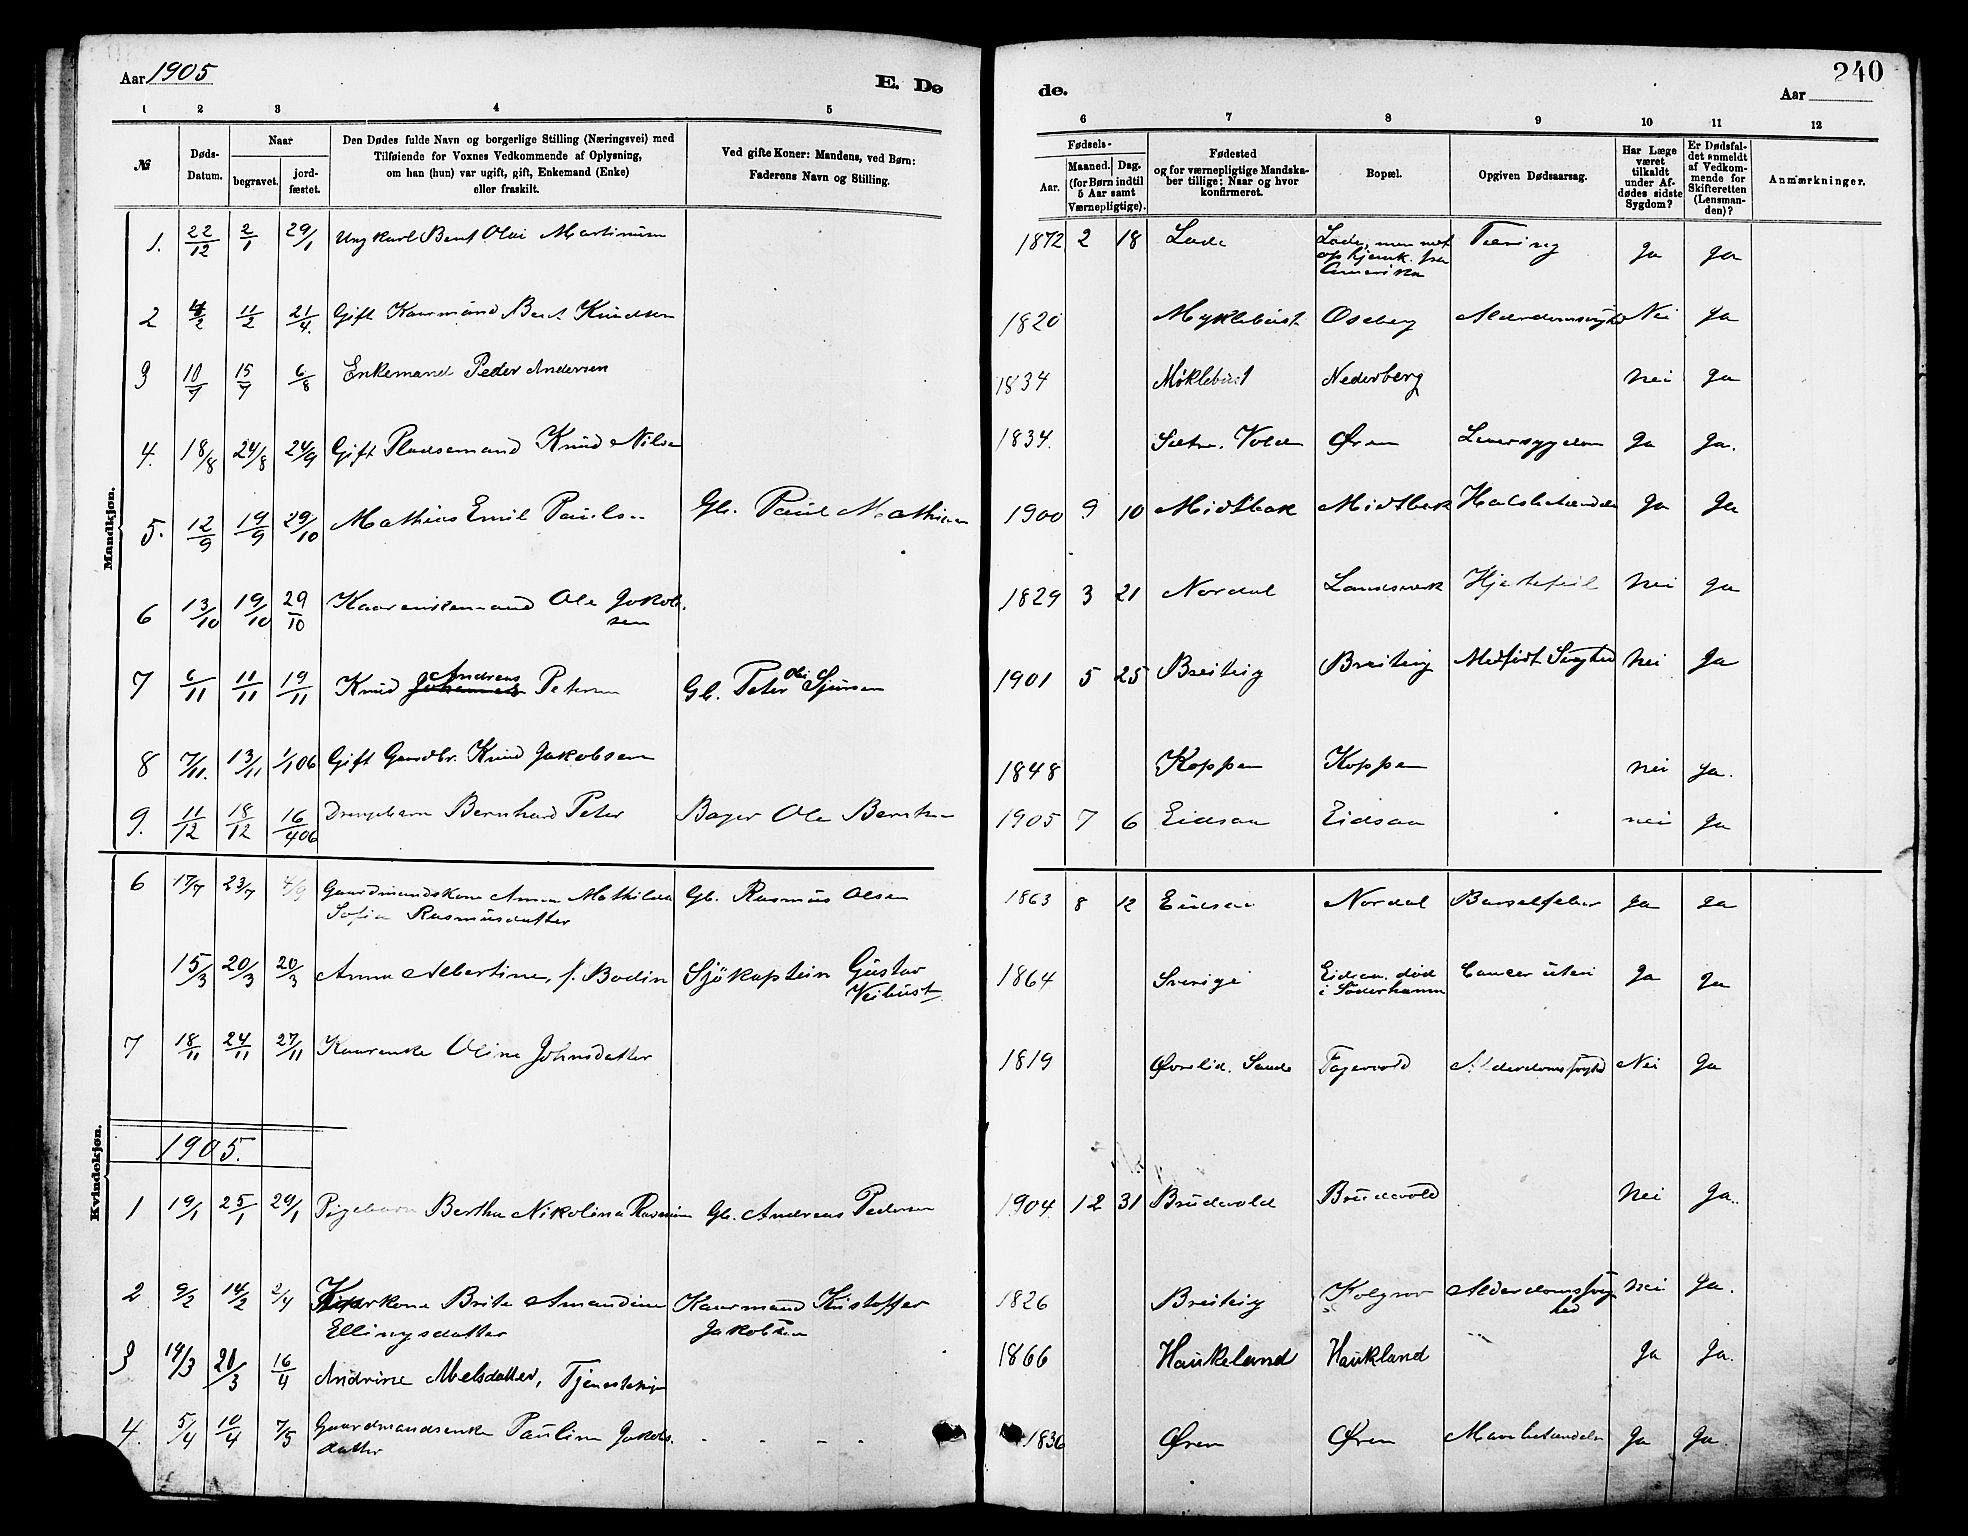 Aar 1905
E. Dø
de.
240
Aar
1 2 3 4 5 6 7 8 9 10 11 12
№
Døds-Datum.
Naar
begravet.
jordfæstet.
Den Dødes fulde Navn og borgerlige Stilling (Næringsvei) med
Tilføiende for Voxnes Vedkommende af Oplysning,
om han (hun) var ugift, gift, Enkemand (Enke)
eller fraskilt.
Ved gifte Koner: Mandens, ved Børn:
Faderens Navn og Stilling.
Fødsels-
Aar. Maaned. Dag.
(for Børn indtil 5 Aar samt Værnepligtige).
Fødested
og for værnepligtige Mandskaber tillige: Naar og hvor konfirmeret.
Bopæl.
Opgiven Dødsaarsag.
Har Læge været tilkaldt under Afdødes sidste Sygdom?
Er Dødsfaldet anmeldt af Vedkommende for Skifteretten (Lensmanden)?
Anmærkninger.
Mandkjøn.
1. 22/12 2/1 29/1 Ungkarl Bent Olai Martinussen 1872 2 18 Lade Lade, men net opkjemk. fra Amerika Tæring Ja Ja
2 4/2 11/2 21/4. Gift Kaarmand Bent Knudsen 1820 Myklebust Oseberg Alderdomssvaghed Nei Ja
3 10/7 15/7 6/8 Enkemand Peder Andersen 1834 Myklebust Nederberg Nei Ja
4. 18/8 24/8 24/9 Gift Pladsemand Knud Nilsen 1834. Sætre, Volden Øren Leversygdom Ja Ja.
5. 12/9 19/9 29/10 Mathias Emil Paulsen Gb. Paul Mathisen 1900 9 10 Midtbak Midtbak Halsbetændelse Ja Ja
6 13/10 19/10 29/10 Kaarenkemand Ole Jakobsen 1829 3 21 Nordal Landsverk Hjertefeil Nei Ja
7 6/11 11/11 19/11 Knud Andreas Petersen Gb. Peter Olai Sjursen 1901 5 25 Breiteig Breiteig Medfødt Svaghed Nei Ja
8 7/11. 13/11 1/1 06 Gift Gaardbr. Knud Jakobsen 1848 Koppen Koppen Nei Ja.
9. 11/12 18/12 16/4 06 Drengebarn Bernhard Peter Bager Ole Berntsen 1905 7 6 Eidsaa Eidsaa nei Ja
Kvindekjøn.
6 17/7 23/7 4/9 Gaardmandskone Anna Mathilda Sofia Rasmusdatter Gb. Rasmus Olsen 1863 8 12 Eidsaa Nordal Barselfeber Ja Ja
15/3 20/3 20/3 Anna Albertine, f. Bodin Sjökaptein Gustav Veibust 1864 Sverige Eidsaa, død i Söderhamn Cancer uteri Ja Ja
7 18/11 24/11 27/11 Kaarenke Oline Johnsdatter 1819 Øvrelid, Sande Fagervold Alderdomssvaghed Nei Ja
1905.
1 19/1 25/1 29/1 Pigebarn Bertha Nikolina Rasmine Gb. Andreas Pedersen 1904 12 31 Brudevold Brudevold Nei Ja.
2 9/2 14/2 2/4 Kaarkone Brite Amandine Ellingsdatter Kaarmand Kristoffer Jakobsen 1826 Breiteig Kolgrov Alderdomssvaghed Nei Ja.
3 14/3 20/3 16/4 Andrine Abelsdatter, Tjenestepige 1866 Haukeland Haukland Ja Ja.
4. 5/4 10/4 7/5 Gaardmandsenke Pauline Jakobsdatter - - - - 1836 Øren Øren Mavebetændelse Ja Ja.